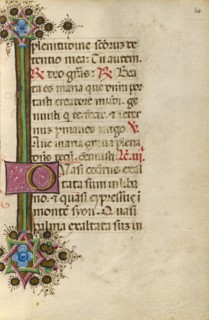 plenitudine sctorus de
tentio mea: Tu autem.
R Deo gras: R Bea
ta es maria que dnm por
tasti creatorē mūdi. ge
nuisti q te fecit. & in eter
nuz pmanes virgo. V
Aue maria grā plena
dns tecū. Genuisti.
Quasi cedrus exal
tata sum in liba
no. & quasi cypressus ī
monte syon. Quasi
palma exaltata suz in